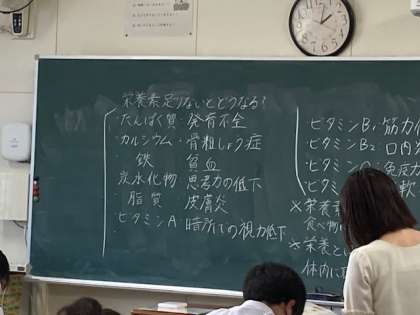 栄養素足りないとどうなる?
・たんぱく質・発育不全
・カルシウム・骨粗しょう症
・鉄 貧血
炭水化物 思考力の低下
・脂質 皮膚炎
・ビタミンA 暗所での視力低下
・ビタミンB₁:筋力低
・ビタミンB₂:口内炎
・ビタミン :免疫力
・ビタミン 軟
※栄養素
食べ物
※栄養と
体内に